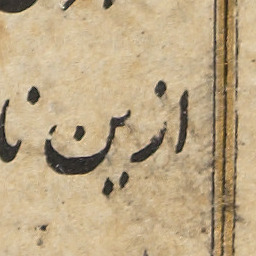 ازین نا